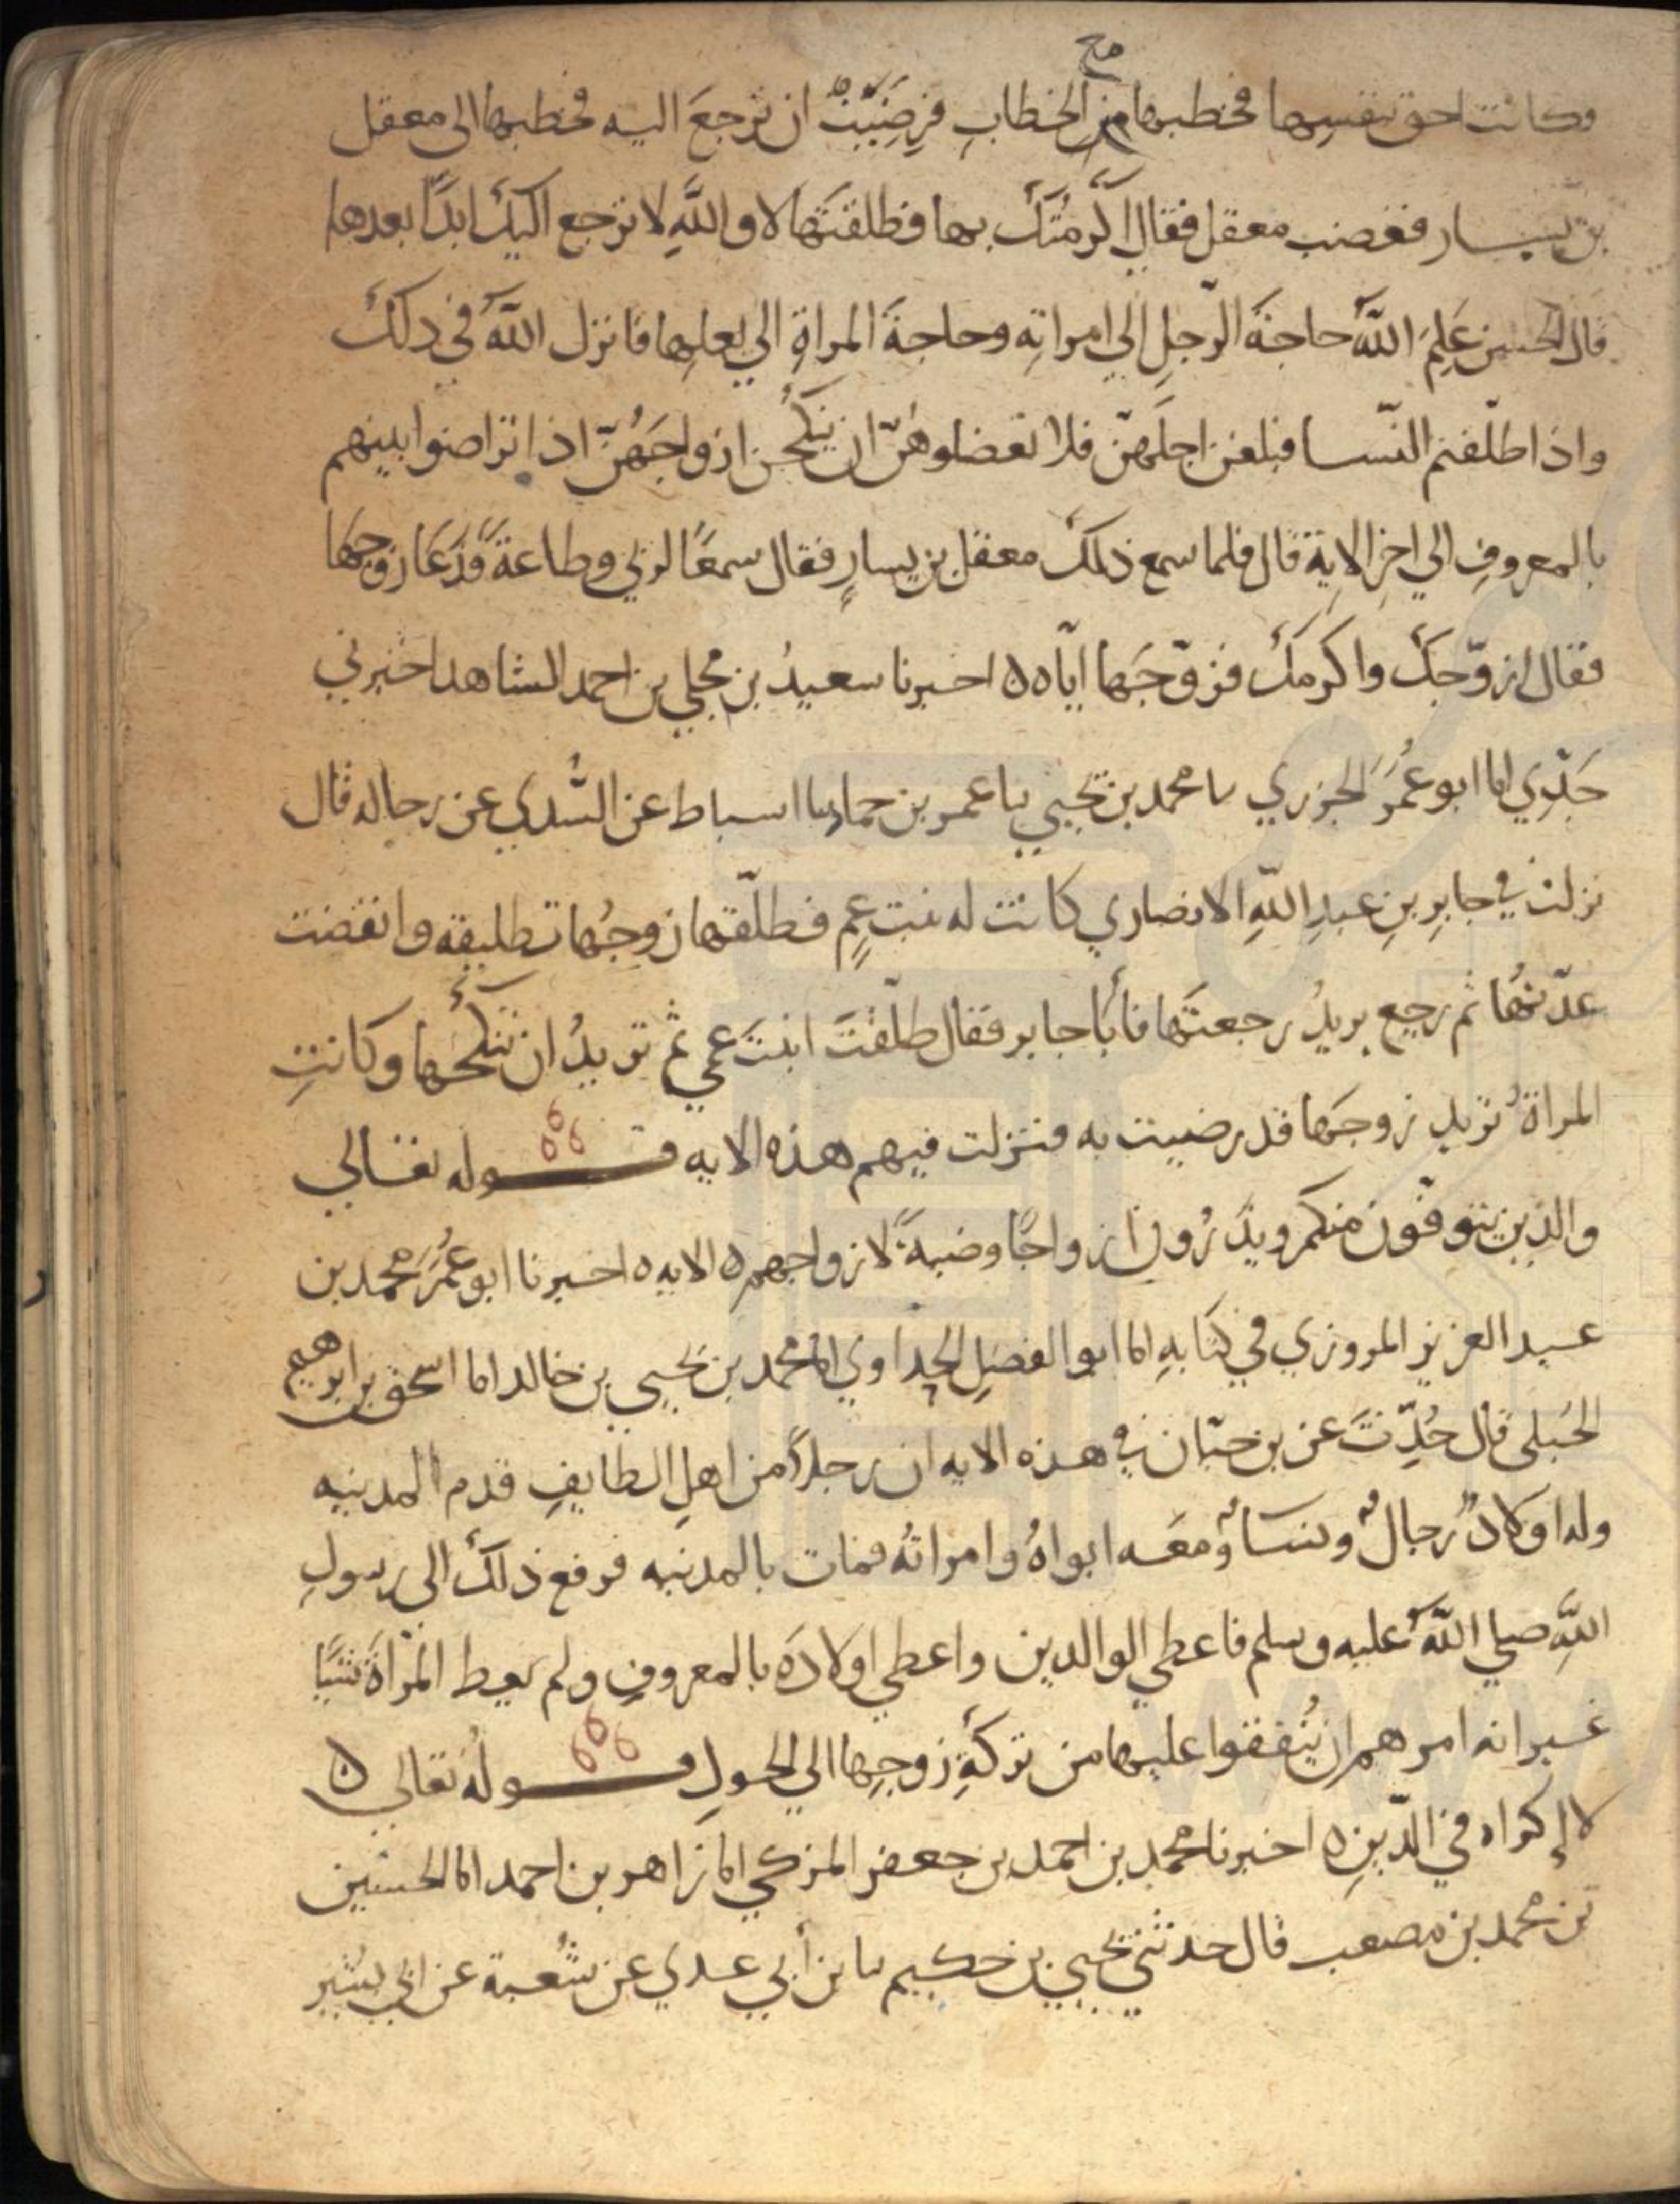 وكانت احق بنفسِها فخطبها من الخطابِ فرِضَيَتْ ان تَرجعَ اليه فخطبها الى معقل
مح
بن يسار فغضب معقل فقال اَكرمتُكَ بها فطلقتَها لا واللَّهِ لا ترجع اليكَ ابدًا بعدها
قال الحسن عَلِمَ اللّهُ حاجةَ الرّجلِ الي امراتِه وحاجةَ المراةِ الي بعلِها فانزل اللّهُ في ذلكَ
واذا طلّقتم النّسا فبلغن اجلَهنّ فلا تعضلوهُنّ ان يَنكحْن ازواجَهُنّ اذا تراضوا بينهم
بالمعروفِ الي اخِرِ الاية قال فلما سمع ذلكَ معقل بن يسارٍ فقال سمعًا لربي وطاعةً فَدَعَا زوجَها
فقال ازوّجكَ واكرمكَ فزوّجَها ايّاه ه اخبرنا سعيدُ بن محمد بن احمد الشاهد اخبرني
جَدّي انا ابو عمُرَ الجزري نا محمد بن يحيي نا عمر بن حماد نا اسباط عن السُّدي عن رجاله قال
نزلت في جابِرِ بنِ عبدِ اللّهِ الانصاري كانت له بنت عمٍ فطلّقها زوجُها تطليقه وانقضت
عدّتهُا ثم رجع يريدُ رجعتَها فأبَا جابر فقال طلّقتَ ابنتَ عمي ثم تريدُ ان تنكحَها وكانتِ
المراةُ تريد زوجَها قد رضيت به فنزلت فيهم هذه الايه قـــوله تعالي
والذين يتوفّون منكم ويذَرُون ازواجًا وصيةً لازواجهم ه الايه ه اخبرنا ابو عمُرَ محمد بن
عبد العزيز المروزي في كتابهِ انا ابو الفضلِ الحدادي انا محمد بن يحيى بن خالد انا اسحق بن ابرهيم
الحنبلى قال حُدِّثتَ عن بن حيّان في هذه الايه ان رجلاً من اهلِ الطايفِ قدم المدينه
وله اولادٌ رجالٌ ونساءٌ ومعَه ابواهُ وامراتهُ فمات بالمدينه فرفع ذلكَ الى رسولِ
اللَّهِ صلي اللّهُ عليه وسلم فاعطي الوالدين واعطي اولادَه بالمعروفِ ولم يعط المرْاةَ شيًا
غير انه امرهم ان يُنفقوا عليها من تركَةِ زوجِها الي الحولِ قـــولُه تعالي ه
لا إكراه في الدّينِ ه اخبرنا محمد بن احمد بن جعفر المزكي انا زاهر بن احمد انا الحسين
بن محمد بن مصعب قال حدثني يحيي بن حكيم نا بن أبي عدي عن شُعبة عن ابي بشير